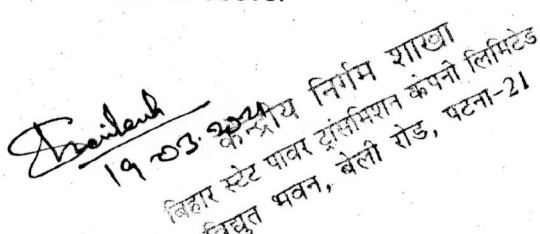 19-03-
केन्द्रीय निर्गम शाखा
बिहार स्टेट पावर ट्रांसमिशन कंपनी लिमिटेड
विद्युत भवन, बेली रोड, पटना-21